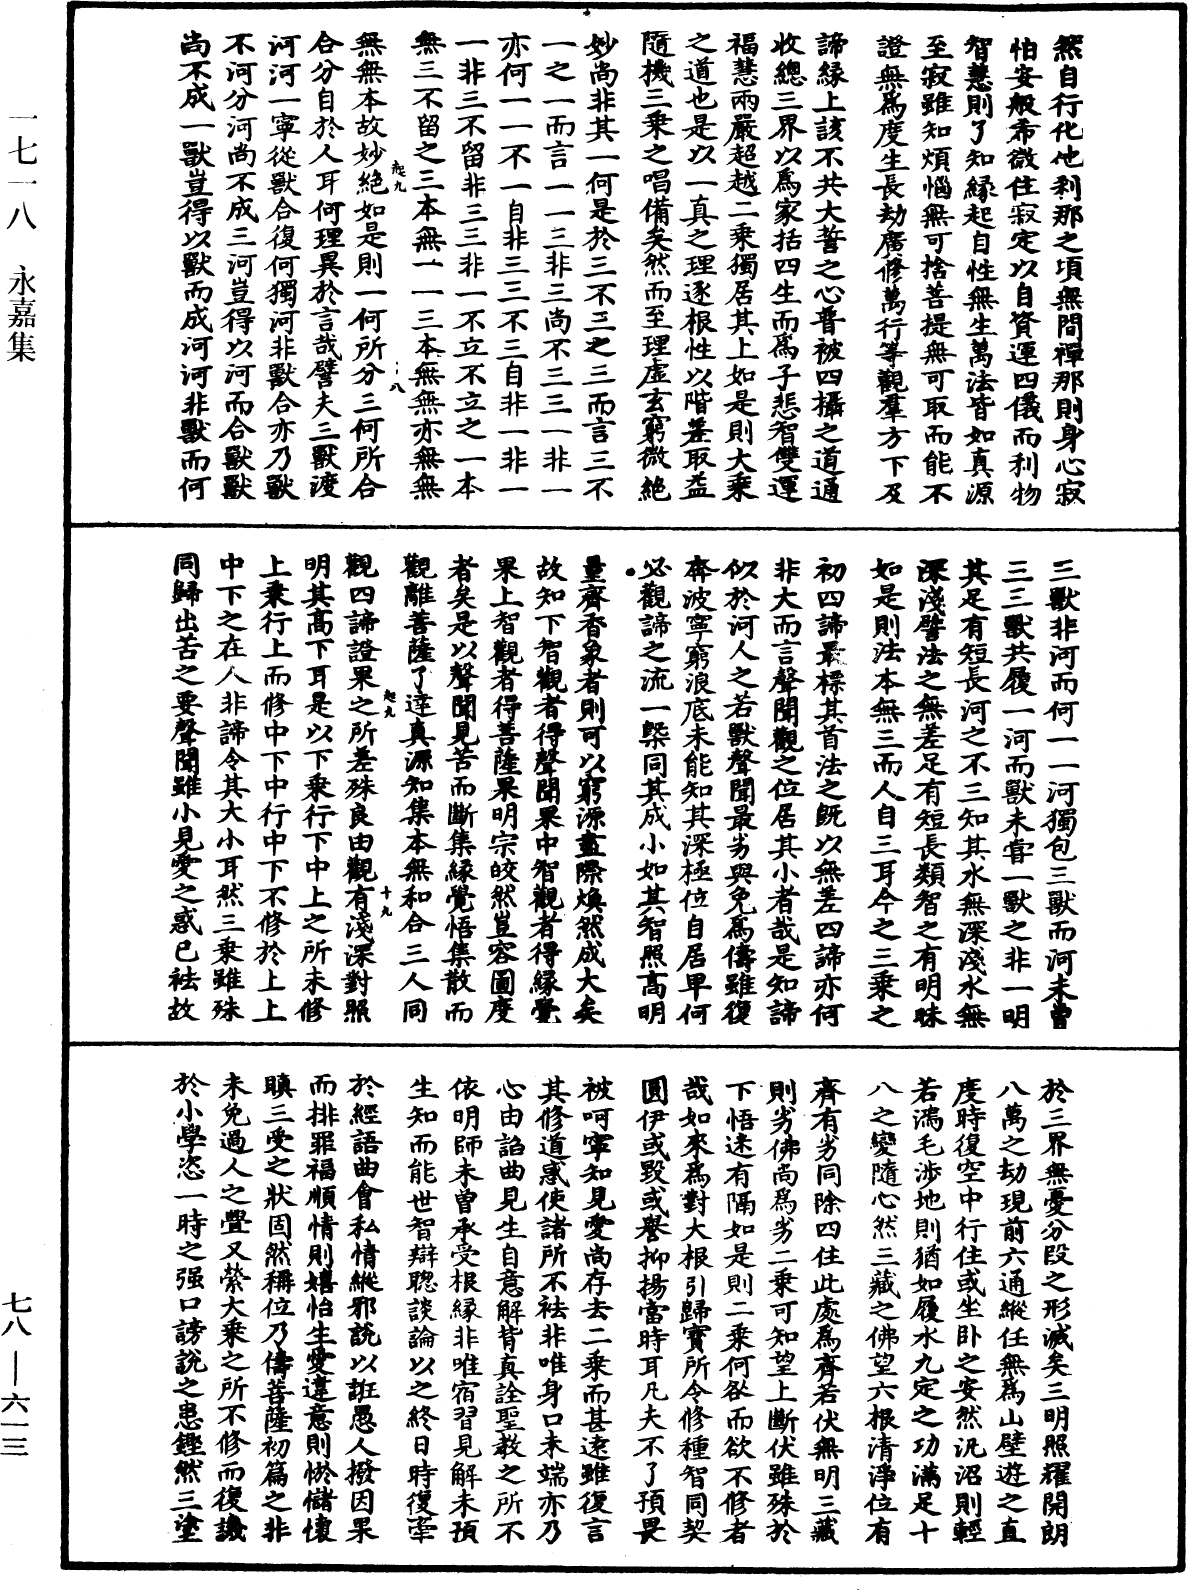 然自行化他利那之頃無間禪那則身心寂
怕安般希微住寂定以自資運四儀而利物
智慧則了知緣起自性無生萬法皆如真源
至寂雖知煩惱無可捨菩提無可取而能不
證無爲度生長劫廣修萬行等觀羣方下及
諦緣上該不共大誓之心普被四攝之道通
收總三界以爲家括四生而爲子悲智雙運
福慧兩嚴超越二乘獨居其上如是則大乘
之道也是以一真之理逐根性以階差取益
隨機三乘之唱備矣然而至理虛玄窮微絕
妙尚非其一何是於三不三之三而言三不
一之一而言一一三非三尚不三三一非一
亦何一一不一自非三三不三自非一非一
一非三不留非三三非一不立不立之一本
無三不留之三本無一一三本無無亦無無
無無本故妙絕如是則一何所分三何所合
合分自於人耳何理異於言哉譬夫三獸渡
河河一寧從獸合復何獨河非獸合亦乃獸
不河分河尚不成三河豈得以河而合獸獸
尚不成一獸豈得以獸而成河河非獸而何
三獸非河而何一一河獨包三獸而河未曾
三三獸共履一河而獸未甞一獸之非一明
其足有短長河之不三知其水無深淺水無
深淺譬法之無差足有短長類智之有明昧
如是則法本無三而人自三耳今之三乘之
初四諦最標其首法之旣以無差四諦亦何
非大而言聲聞觀之位居其小者哉是知諦
似於河人之若獸聲聞最劣與兔爲儔雖復
奔波寧窮浪底未能知其深極位自居卑何
必觀諦之流一槩同其成小如其智照高明
量齊香象者則可以窮源盡際煥然成大矣
故知下智觀者得聲聞果中智觀者得緣覺
果上智觀者得菩薩果明宗皎然豈容圖度
者矣是以聲聞見苦而斷集緣覺悟集散而
觀離菩薩了達真源知集本無和合三人同
觀四諦證果之所差殊良由觀有淺深對照
明其高下耳是以下乘行下中上之所未修
上乘行上而修中下中行中下不修於上上
中下之在人非諦令其大小耳然三乘雖殊
同歸出苦之要聲聞雖小見愛之惑已袪故
於三界無憂分段之形滅矣三明照耀開朗
八萬之劫現前六通縱任無爲山壁遊之直
度時復空中行住或坐卧之安然汎沼則輕
若鴻毛涉地則猶如履水九定之功滿足十
八之變隨心然三藏之佛望六根清淨位有
齊有劣同除四住此處爲齊若伏無明三藏
則劣佛尚爲劣二乘可知望上斷伏雖殊於
下悟迷有隔如是則二乘何咎而欲不修者
哉如來爲對大根引歸寶所令修種智同契
圓伊或毀或譽抑揚當時耳凡夫不了預畏
被呵寧知見愛尚存去二乘而甚遠雖復言
其修道惑使諸所不袪非唯身口未端亦乃
心由諂曲見生自意解背真詮聖教之所不
依明師未曾承受根緣非唯宿習見解未預
生知而能世智辯聰談論以之終日時復牽
於經語曲會私情縱邪說以誑愚人撥因果
而排罪福順情則嬉怡生愛違意則惀懀懷
瞋三受之狀固然稱位乃儔菩薩初篇之非
未免過人之舋又縈大乘之所不修而復譏
於小學恣一時之强口謗說之患鏗然三塗
起九
八
起九
十九
一七一八　永嘉集
七八—六一三